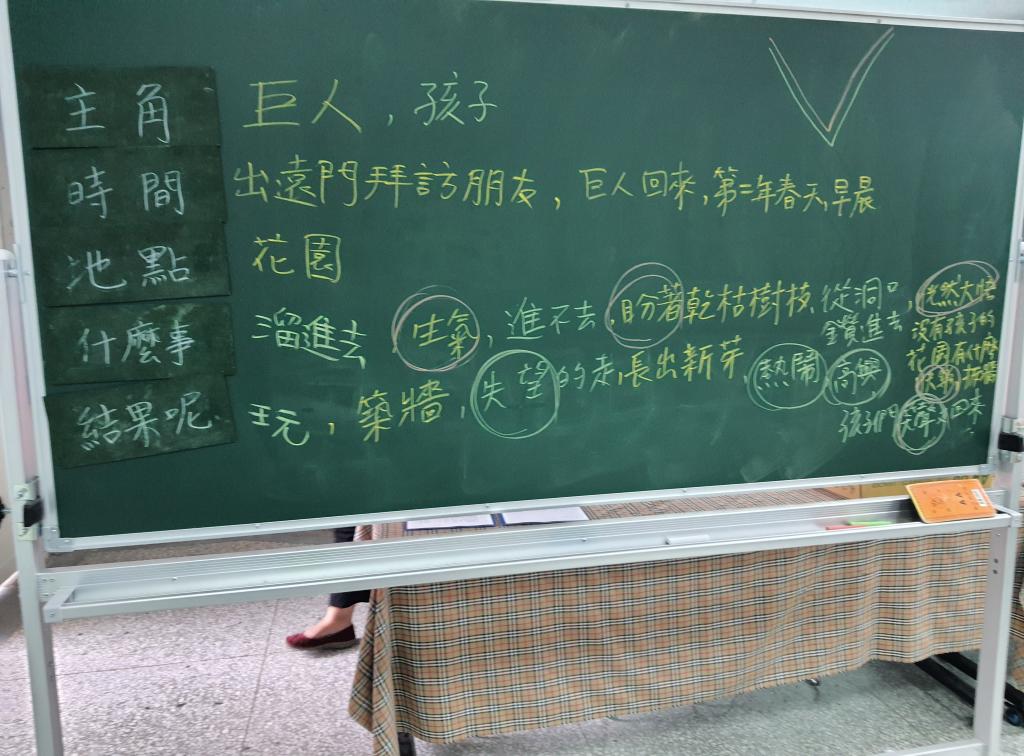 主角 巨人，孩子
時間 出遠門拜訪朋友，巨人回來，第二年春天，早晨
池點 花園
什麼事 溜進去 生氣，進不去，盼著乾枯樹枝 從洞口鑽進去，恍然大悟
沒有孩子的花園有什麼
結果呢 玩，築牆，失望的走，長出新芽，熱鬧 高興
孩子們笑聲 回來